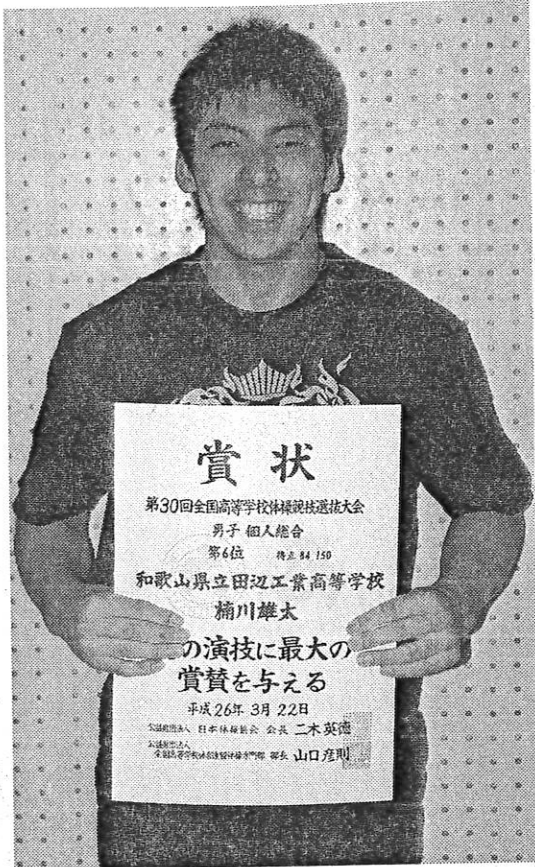 賞状
第30回全国高等学校体操競技選抜大会
男子 個人総合
第6位 得点 84.150
和歌山県立田辺工業高等学校
楠川雄太
の演技に最大の
賞賛を与える
平成26年 3月 22日
公益財団法人 日本体操協会 会長 二木英徳
公益財団法人
全国高等学校体育連盟体操専門部 部長 山口彦則